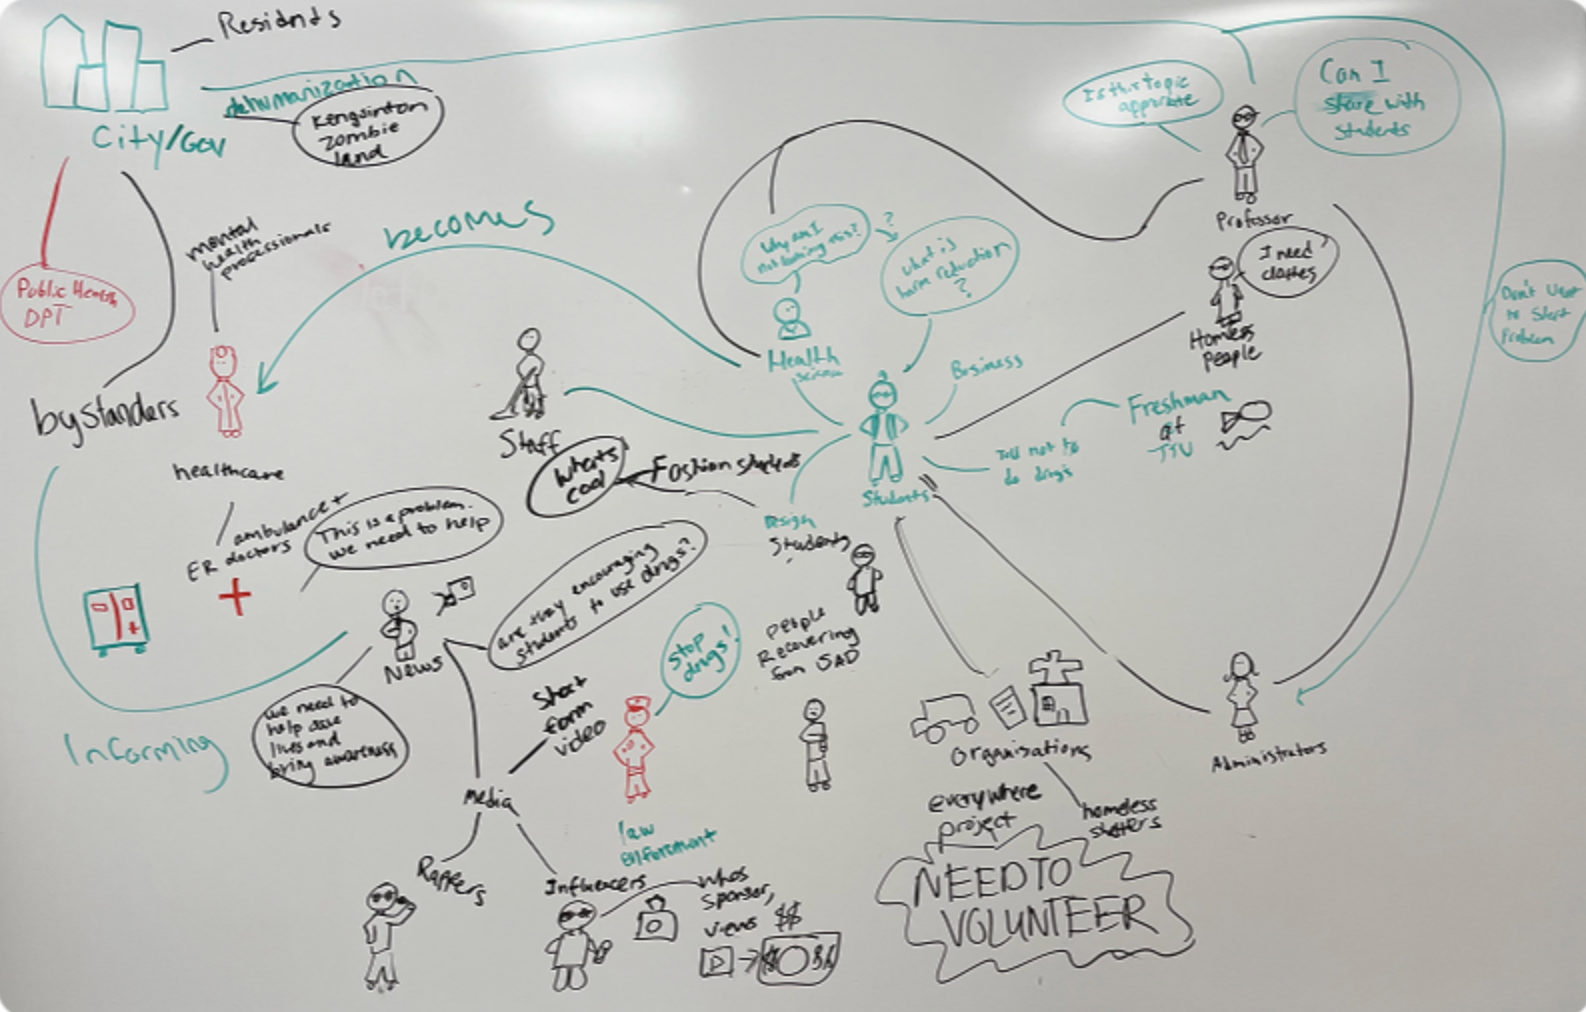 Residnts
dehumanization
Kengsinton
zombie
land
City/Gov
Is this topic
apprirate
Can I
share with
students
Professor
mental
health
professionals
becomes
Public Health
DPT
Why am I
not learning this?
?
what is
harm reduction
?
I need
clothes
Homless
people
Don't Want
to Start
Problem
Health
science
Business
bystanders
Staff
Freshman
at
TJU
Told not to
do drugs
Students
healthcare
What's
cool
Fashion students
Design
Students
ambulance +
ER doctors
This is a problem.
we need to help
are they encouraging
students to use drugs?
News
Stop
drugs!
People
Recovering
from SAD
Short
form
video
we need to
help save
lives and
bring awareness
Informing
Media
Organisations
Administrators
everywhere
project
homeless
shelters
law
enforcment
Rappers
Influencers
whos
sponsor,
views $$
NEED TO
VOLUNTEER